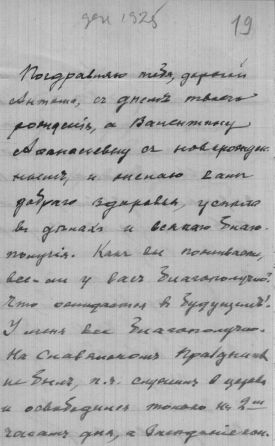 дек 1925
19
Поздравляю тебя, дорогой
Антоша, с днем твоего
рождения, а Валентину
Афанасьевну с новорожден-
ным, и желаю вам
доброго здоровья, успеха
в делах и всякаго благо-
получія. Как вы поживаете,
все-ли у вас благополучно?
Что ожидается в будущем?
У меня все благополучно.
На Славянском Празднике
не был, п.ч. служил в церкви
и освободился только на 2-м
часам дня, а